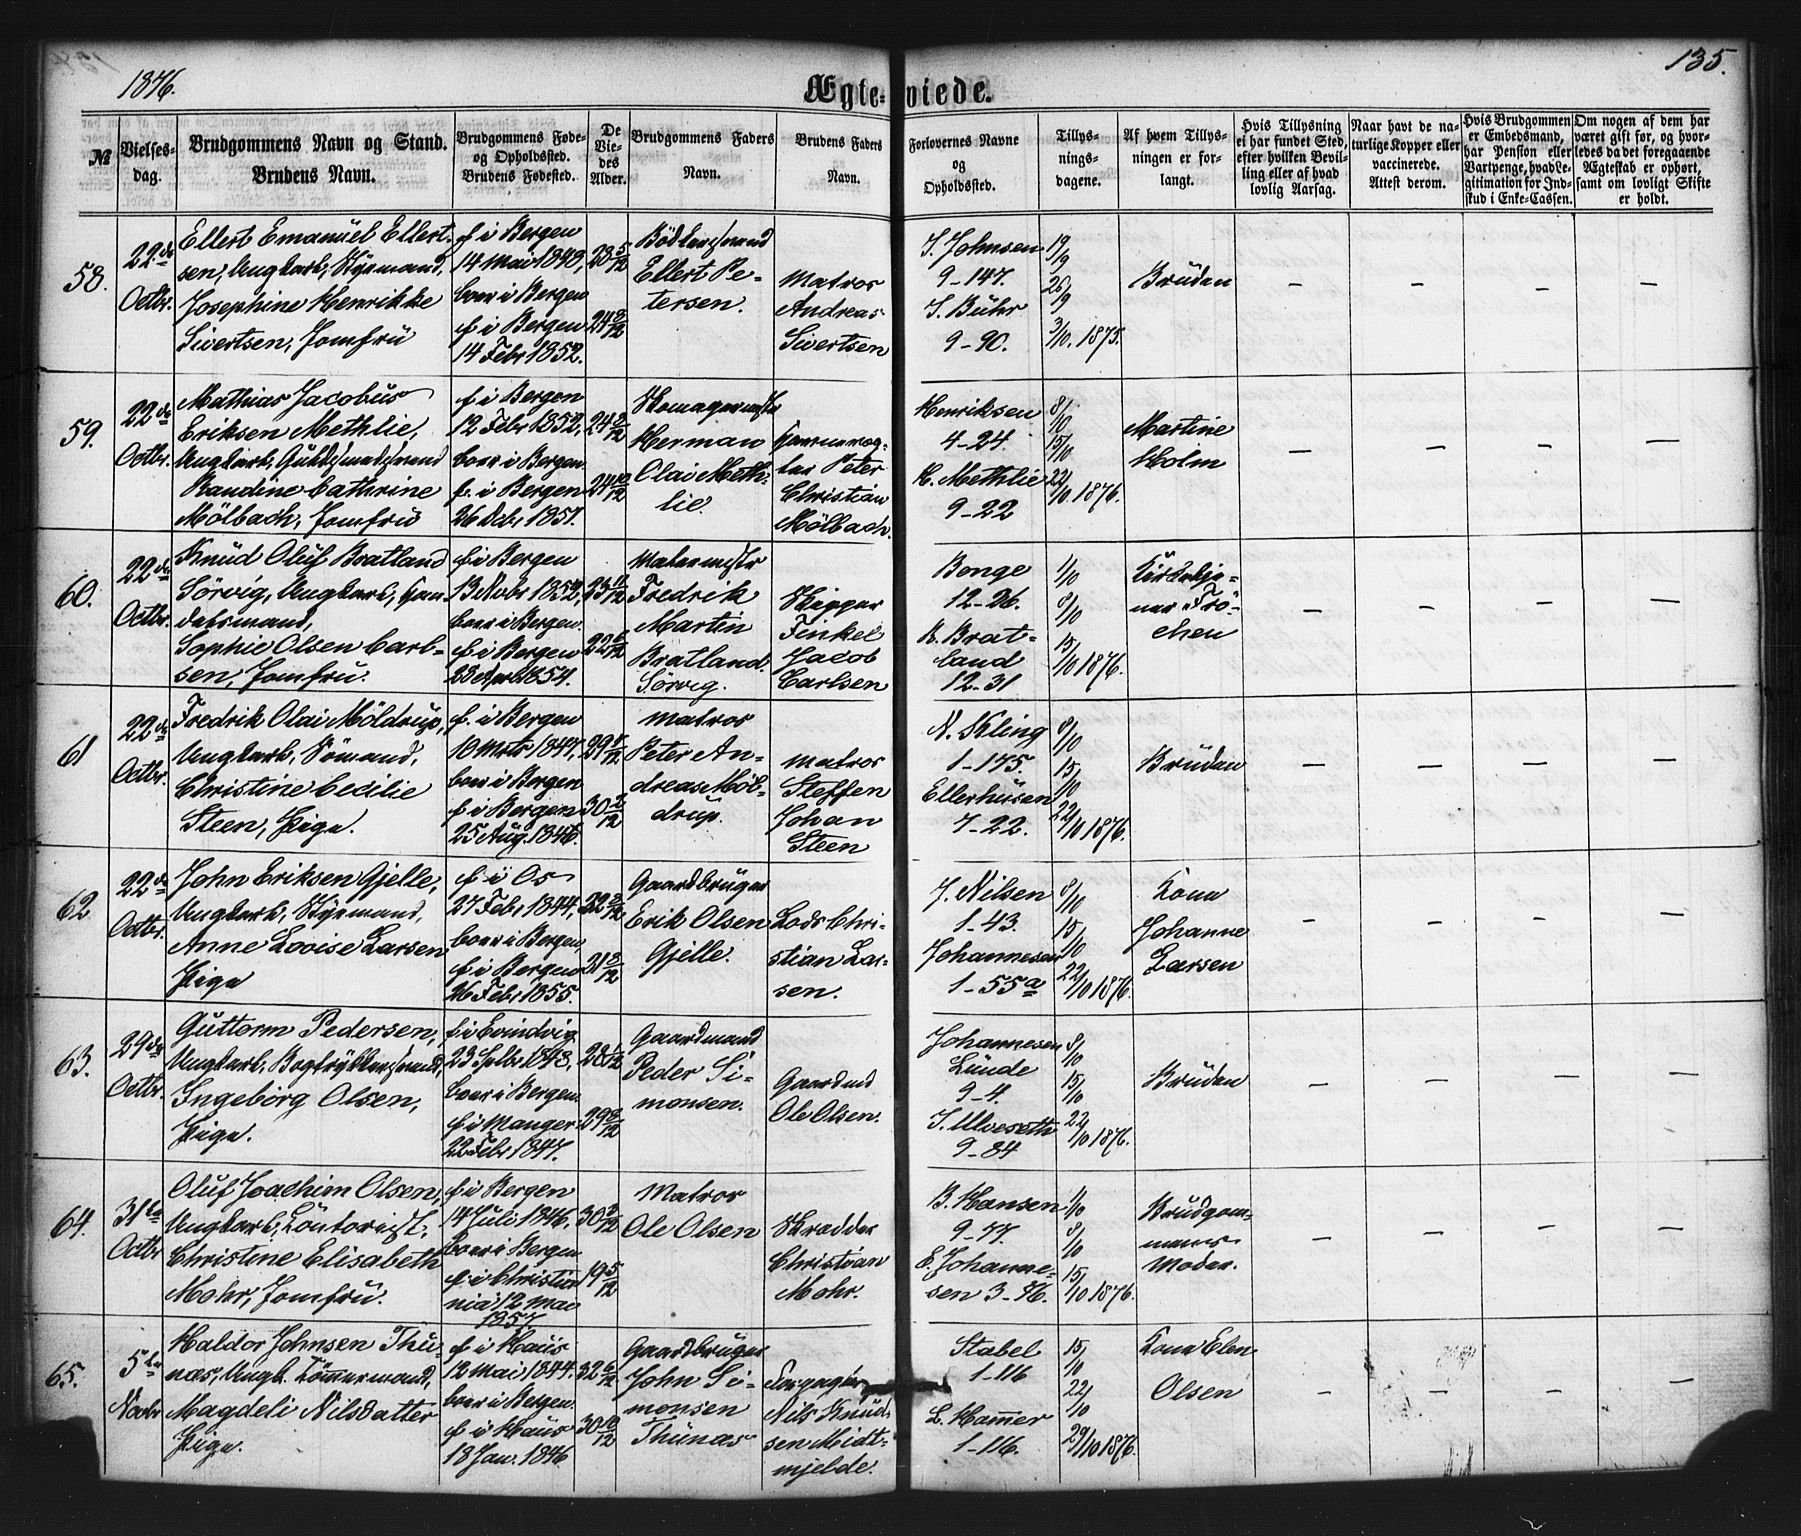 1876.
135.
Ægte-viede.
№
Vielses-
dag.
Brudgommens Navn og Stand.
Brudens Navn.
Brudgommens Føde-
og Opholdssted.
Brudens Fødested.
De
Vie-
des
Alder.
Brudgommens Faders
Navn.
Brudens Faders
Navn.
Forlovernes Navne
og
Opholdssted.
Tillys-
nings-
dagene.
Af hvem Tillys-
ningen er for-
langt.
Hvis Tillysning
ei har fundet Sted,
efter hvilken Bevil-
ling eller af hvad
lovlig Aarsag.
Naar havt de na-
turlige Kopper eller
vaccinerede.
Attest derom.
Hvis Brudgommen
er Embedsmand,
har Pension eller
Vartpenge, hvad Le-
gitimation for Ind-
skud i Enke-Cassen.
Om nogen af dem har
været gift før, og hvor-
ledes da det foregaaende
Ægteskab er ophørt,
samt om lovligt Skifte
er holdt.
58.
22de
Octbr.
Ellert Emanuel Ellert-
sen, Ungkarl, Styrmand,
Josephine Henrikke
Sivertsen, Jomfru
f i Bergen
14 Mai 1848,
boer i Bergen
f i Bergen
14 Febr 1852.
28 5/12
24 8/12
Bødkersvend
Ellert Pe-
tersen.
Matros
Andreas
Sivertsen
J. Johnsen
9-147.
J. Bühr
9-90.
19/9
26/9
3/10. 1875.
Bruden
— — — —
59.
22de
Octbr.
Mathias Jacobus
Eriksen Methlie,
Ungkarl, Guldsmedsvend
Randine Cathrine
Mölbach, Jomfru
f i Bergen
12 Febr 1852,
boer i Bergen
f. i Bergen
26 Decbr 1851.
24 8/12
24 10/12
Skomagermester
Herman
Olai Meth-
lie.
Peter
Christian
Mölbach.
Henriksen
4-24.
H. Methlie
9-22
8/10
15/10
22/10. 1876.
Martine
Holm
— — — —
60.
22de
Octbr.
Knud Oluf Bratland
Sörvig, Ungkarl, Han-
delsmand,
Sophie Olsen Carl-
sen, Jomfru.
f i Bergen
13 Novbr 1852,
boer i Bergen.
f i Bergen
23 April 1854.
23 11/12
22 6/12
Malermester
Fredrik
Martin
Bratland
Sörvig.
Skipper
Finkel
Jacob
Carlsen
Bonge
12-26.
K. Brat-
land
12-31
1/10
8/10
15/10 1876.
Kirketje-
ner Frö-
chen
— — — —
61
22de
Octbr.
Fredrik Olai Möldrup,
Ungkarl, Sömand,
Christine Cecilie
Steen, Pige.
f. i Bergen
10 Mrts 1847,
boer i Bergen
f i Bergen
25 Aug. 1846.
29 7/12
30 2/12
Matros
Peter An-
dreas Möl-
drup.
Matros
Steffen
Johan
Steen
N. Kling
1-175.
Ellerhusen
7-22.
8/10
15/10
22/10 1876.
Bruden
— — — —
62
22de
Octbr.
John Eriksen Gjelle,
Ungkarl, Styrmand,
Anne Lovise Larsen
Pige
f i Os
27 Febr 1844,
boer i Bergen
f i Bergen
26 Febr 1855.
32 8/12
21 8/12
Gaardbruger
Erik Olsen
Gjelle.
Lods Chri-
stian Lar-
sen.
J. Nilsen
1-43.
Johannesen
1-55a
8/10
15/10
22/10 1876.
Kona
Johanne
Larsen
— — — —
63.
29de
Octbr.
Guttorm Pedersen,
Ungkarl, Bogtrykkersvend,
Ingeborg Olsen,
Pige.
f i Evindvig
23 Septbr 1848,
boer i Bergen.
f i Manger
22 Febr 1847.
28 1/12
29 8/12
Gaardmand
Peder Si-
monsen.
Gaardmd
Ole Olsen.
Johannesen
Lunde
9-4.
J. Ulveseth
9-84
8/10
15/10
22/10 1876.
Bruden
— — — —
64.
31te
Octbr
Oluf Joachim Olsen,
Ungkarl, Contorist,
Christine Elisabeth
Mohr, Jomfru.
f i Bergen
14 Juli 1846.
boer i Bergen
f i Christia
nia 12 Mai
1857.
30 3/12
19 5/12
Matros
Ole Olsen
Skrædder
Christian
Mohr.
B. Hansen
9-77.
E. Johanne-
sen 3-76.
1/10
8/10
15/10 1876.
Brudgom-
mens
Moder.
— — — —
65.
5te
Novbr
Haldor Johnsen Thu-
næs, Ungk. Tömmermand,
Magdeli Nilsdatter
Pige.
f i Haus
12 Mai 1844.
boer i Bergen.
f i Haus
18 Jan. 1846
32 6/12
30 10/12
Gaardbruger
John Si-
monsen
Thunæs
Nils Knud-
sen Midt-
mjelde.
Stabel
1-116
L. Hammer
1-116.
15/10
22/10
29/10 1876.
Kona Elen
Olsen
— — — —